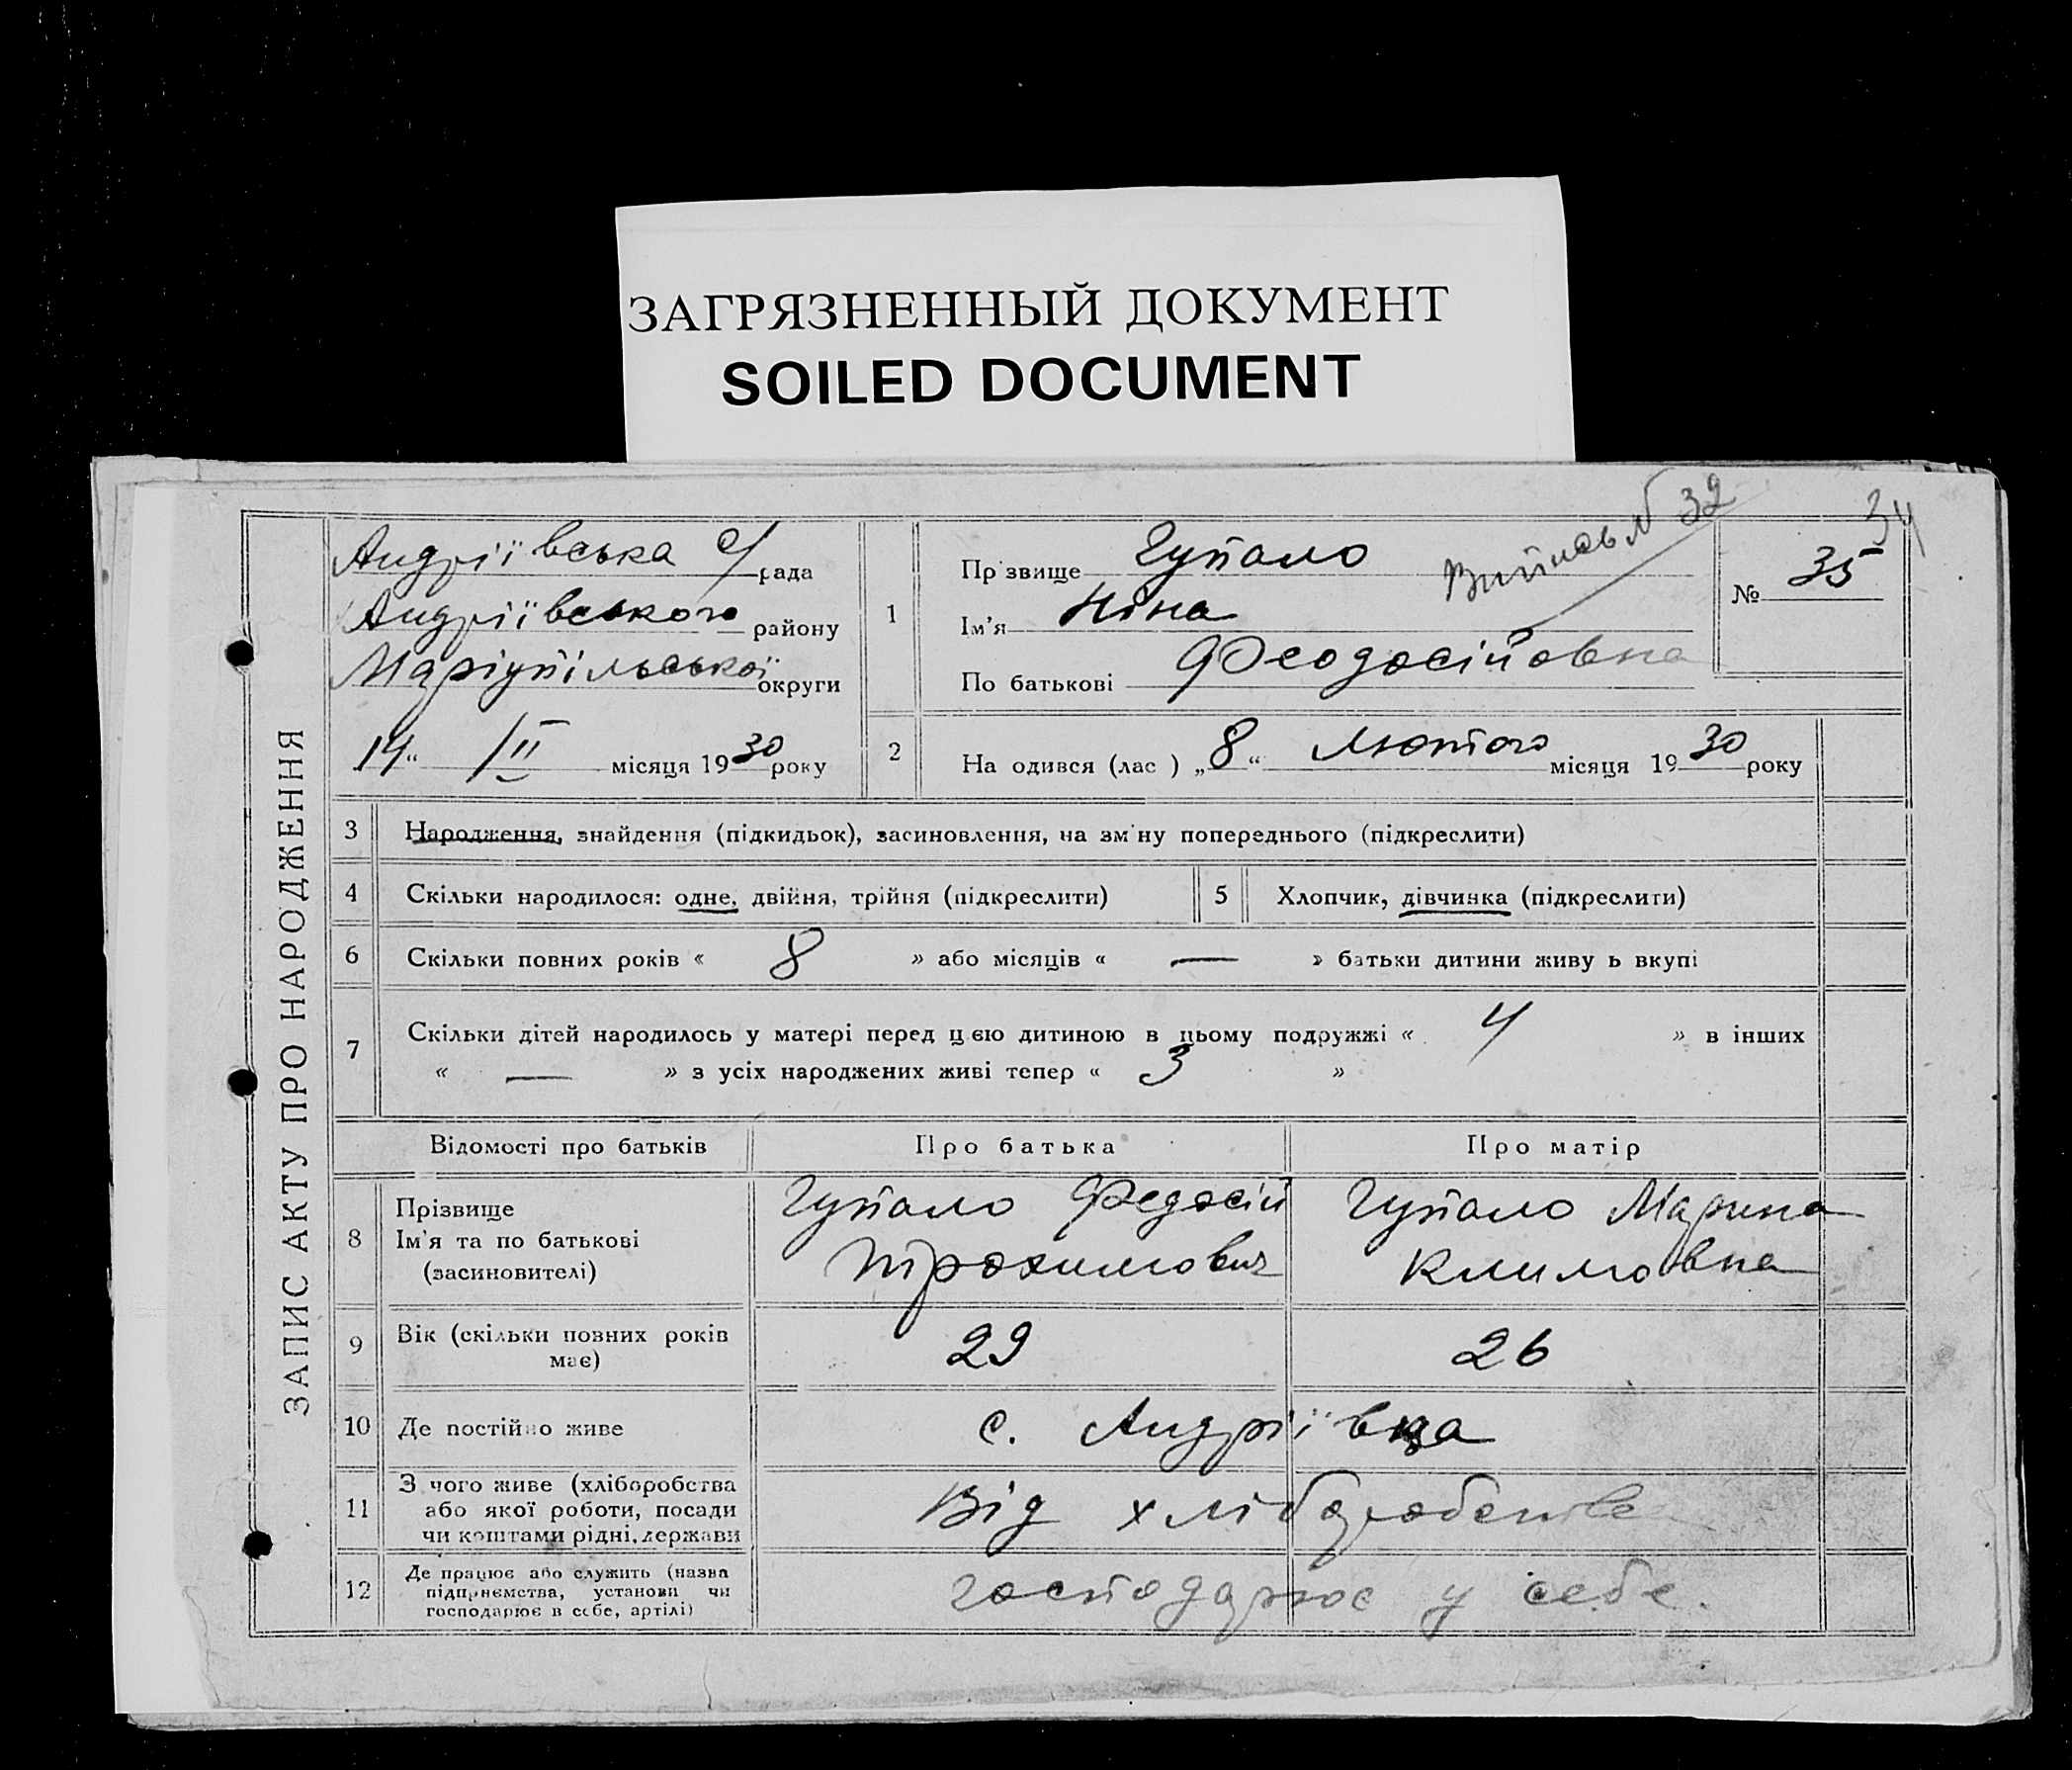 ЗАГРЯЗНЕННЫЙ ДОКУМЕНТ
SOILED DOCUMENT
34
ЗАПИС АКТУ ПРО НАРОДЖЕННЯ
Андріївська с/рада
Андріївського району
Маріупільської округи
14 " /II місяця 1930 року
1
Пр звище Гупало
Ім'я Ніна
По батькові Феодосійовна
№ 32
№ 35
2
На одився (лас ) „8" Лютого місяця 1930 року
3 Народження, знайдення (підкидьок), засиновлення, на зм ну попереднього (підкреслити)
4 Скільки народилося: одне, двійня, трійня (підкреслити)
5 Хлопчик, дівчинка (підкреслити)
6 Скільки повних років « 8 » або місяців « — » батьки дитини живу ь вкупі
7 Скільки дітей народилось у матері перед ц єю дитиною в цьому подружжі « 4 » в інших
« — » з усіх народжених живі тепер « 3 »
Відомості про батьків Про батька Про матір
8 Прізвище
Ім'я та по батькові
(засиновителі)
Гупало Федосій
Трохимович
Гупало Марина
Климовна
9 Вік (скільки повних років
має)
29 26
10 Де постійно живе с. Андріївка
11 З чого живе (хліборобства
або якої роботи, посади
чи коштами рідні, держави
Від хліборобства
12 Де працює або служить (назва
підприємства, установи чи
господарює в себе, артілі)
господарює у себе.